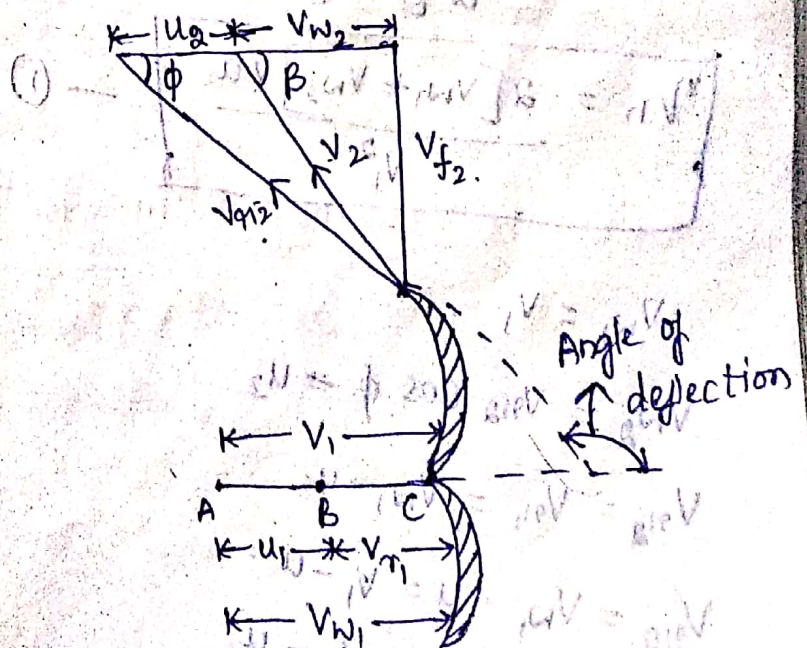 u2 Vw2
(i) φ β
V2 Vf2.
Vr2
Angle of
deflection
V1
A B C
u1 Vr1
Vw1